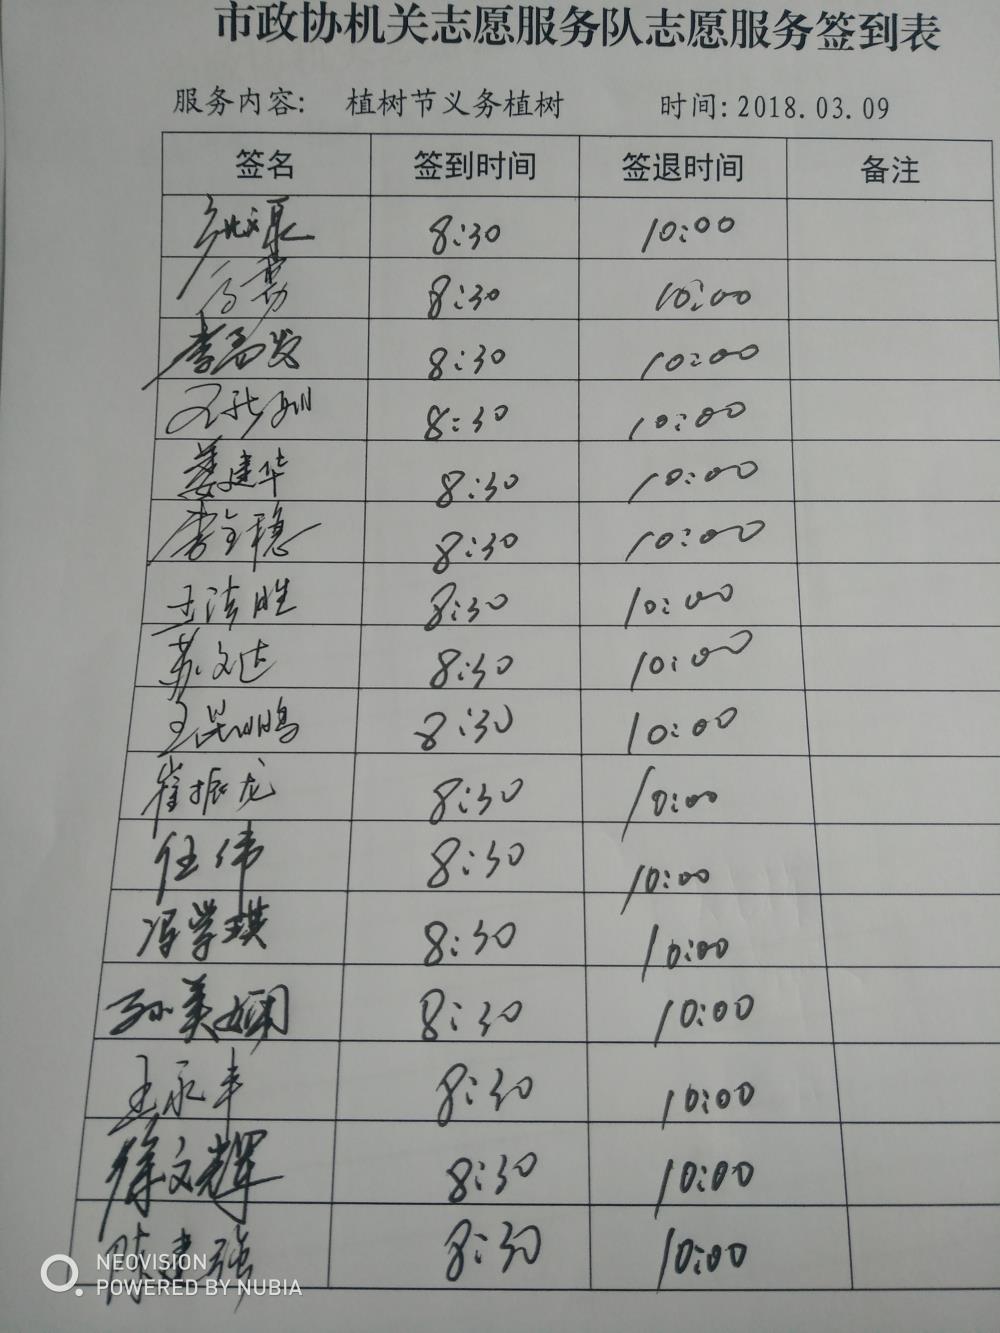 市政协机关志愿服务队志愿服务签到表
服务内容: 植树节义务植树 时间: 2018.03.09
签名 签到时间 签退时间 备注
8:30 10:00
8:30 10:00
李高发 8:30 10:00
8:30 10:00
姜建华 8:30 10:00
李全稳 8:30 10:00
王洪胜 8:30 10:00
苏文达 8:30 10:00
王昆鹏 8:30 10:00
崔振龙 8:30 10:00
任伟 8:30 10:00
冯学琪 8:30 10:00
孙美娴 8:30 10:00
王永丰 8:30 10:00
徐文辉 8:30 10:00
陈建强 8:30 10:00
NEOVISION
POWERED BY NUBIA